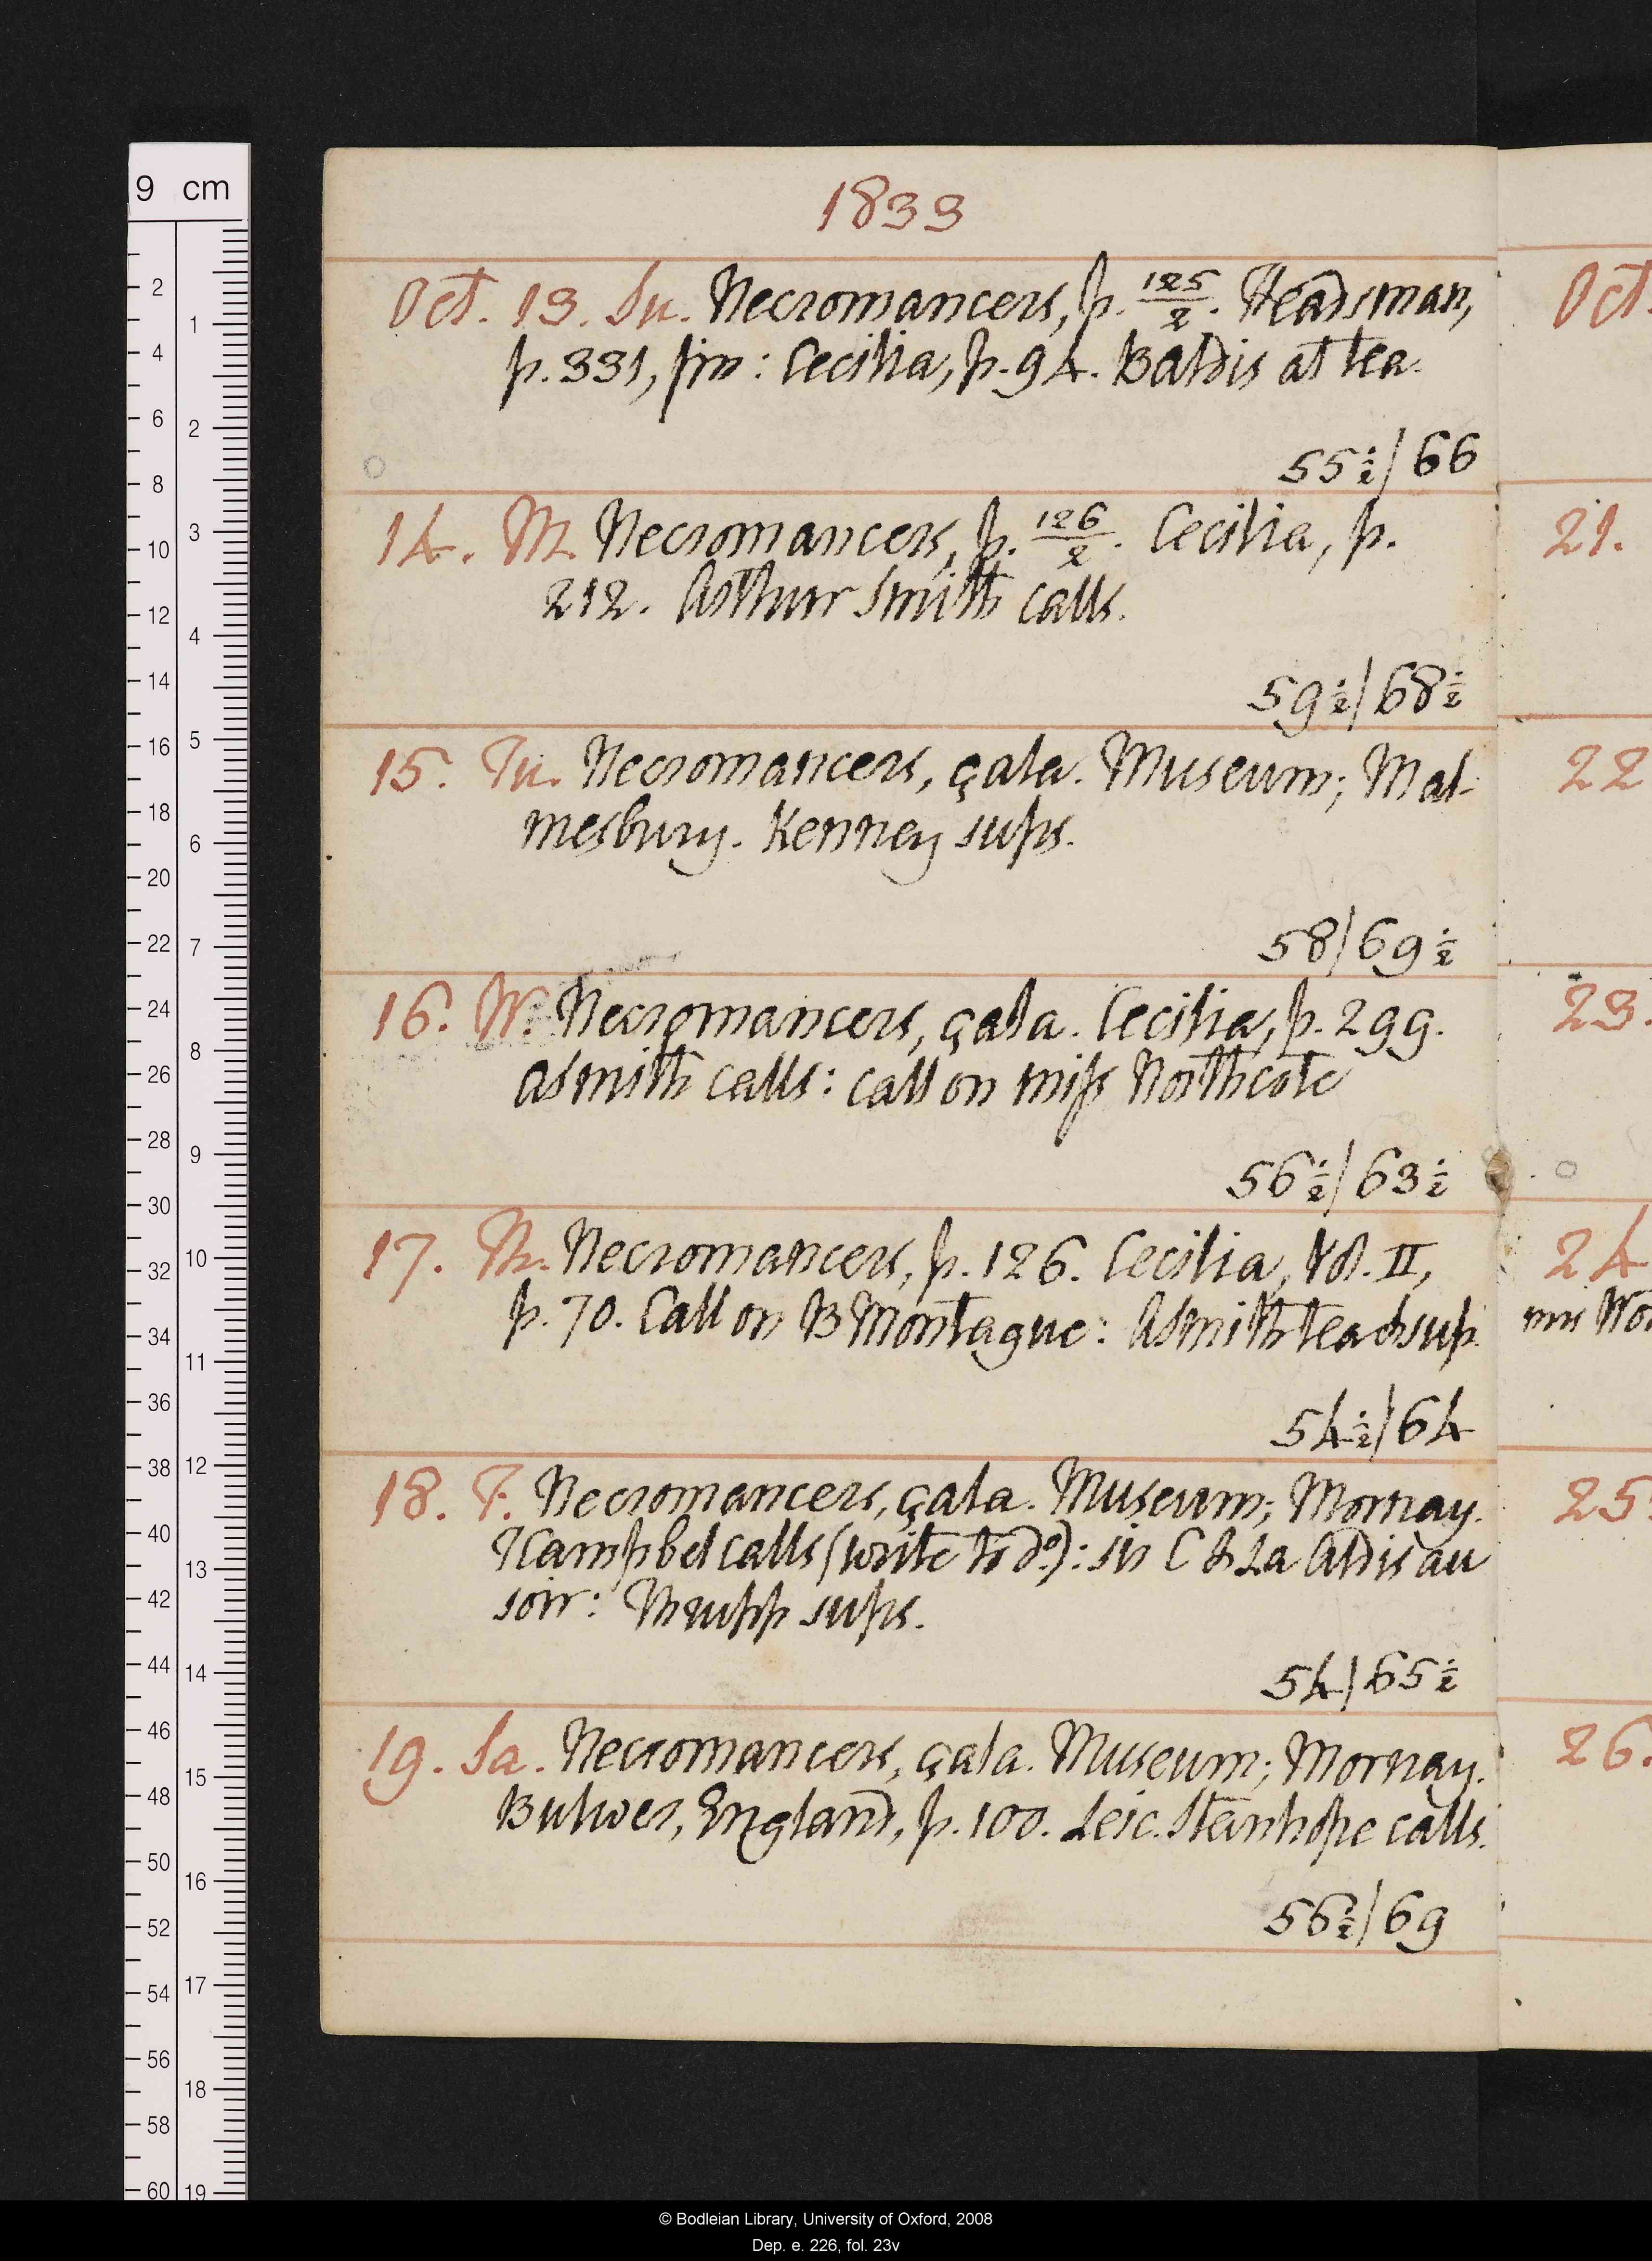 9 cm
1833
Oct. 13. Su. Necromancers, p. 125/2. Headsman,
p. 331, fin: Cecilia, p. 94. Baldis at tea.
55½/66
14. M. Necromancers, p. 126/2. Cecilia, p.
212. Arthur Smith calls.
59½/68½
15. Tu. Necromancers, çala. Museum; Mal-
mesbury. Kenney sups.
58/69½
16. W. Necromancers, çala. Cecilia, p. 299.
A Smith calls: call on miss Northcote
56½/63½
17. Th. Necromancers, p. 126. Cecilia, Vol. II,
p. 70. Call on B Montague: A Smith tea & sup.
54½/64
18. F. Necromancers, çala. Museum; Mornay.
T Campbel calls (write to do.): sir C & La Aldis au
soir: Thrupp sups.
54/65½
19. Sa. Necromancers, çala. Museum; Mornay.
Bulwer, England, p. 100. Leic. Stanhope calls.
56½/69
Oct.
21.
22
23.
24
25
26.
© Bodleian Library, University of Oxford, 2008
Dep. e. 226, fol. 23v